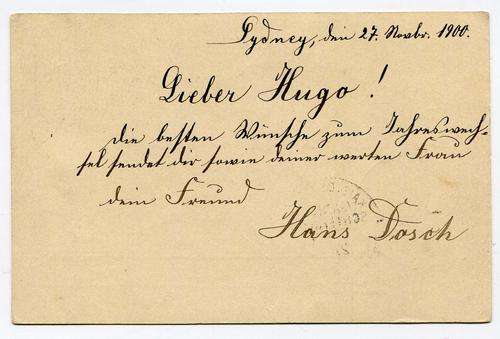 Sydney, den 27. Novbr. 1900.
Lieber Hugo!
die besten Wünsche zum Jahreswech-
sel sendet dir sowie deiner werten Frau
dein Freund
Hans Dosch